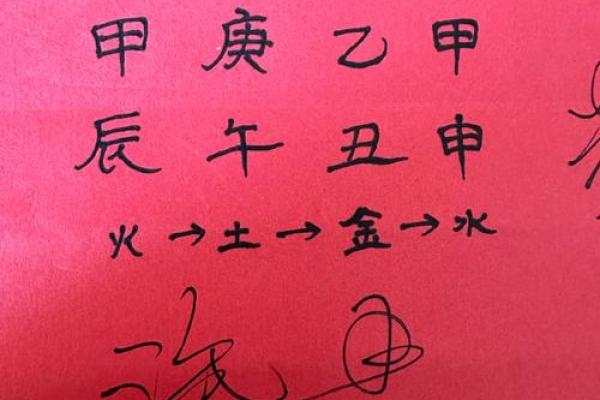 甲 庚 乙 甲
辰 午 丑 申
火→土→金→水